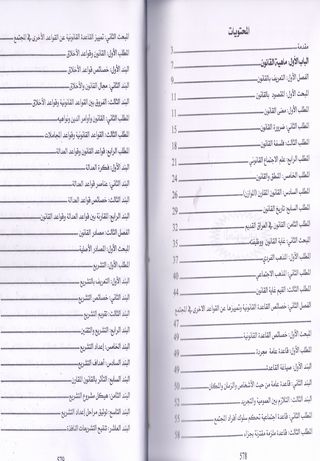 المحتويات
مقدمة 3
الباب الأول: ماهية القانون 7
الفصل الأول: التعريف بالقانون 9
المبحث الأول: المقصود بالقانون 11
المطلب الأول: معنى القانون 11
المطلب الثاني: ضرورة القانون 15
المطلب الثالث: فلسفة القانون 18
المطلب الرابع: علم الاجتماع القانوني 21
المطلب الخامس: المنطق والقانون 24
المطلب السادس: القانون المقارن (الموازن) 26
المطلب السابع: تاريخ القانون 29
المطلب الثامن: القانون في العراق القديم 32
المبحث الثاني: غاية القانون ووظيفته 35
المطلب الأول: المذهب الفردي 37
المطلب الثاني: المذهب الاجتماعي 40
المطلب الثالث: القيم غاية القانون 44
الفصل الثاني: خصائص القاعدة القانونية وتمييزها عن القواعد الاخرى في المجتمع 47
المبحث الأول: خصائص القاعدة القانونية 49
المطلب الأول: قاعدة عامة مجردة 49
البند الأول: صياغة القاعدة
البند الثاني: قاعدة عامة من حيث الأشخاص والزمان والمكان 50
البند الثالث: التلازم بين العمومية والتجريد 52
المطلب الثاني: قاعدة اجتماعية تحكم سلوك أفراد المجتمع 55
المطلب الثالث: قاعدة ملزمة مقترنة بجزاء 58
578
المبحث الثاني: تمييز القاعدة القانونية عن القواعد الأخرى في المجتمع
المطلب الأول: القانون وقواعد الأخلاق
البند الأول: خصائص قواعد الأخلاق
البند الثاني: مجال القانون والأخلاق
البند الثالث: الفروق بين القواعد القانونية وقواعد الأخلاق
المطلب الثاني: القانون وأوامر الدين ونواهيه
المطلب الثالث: القواعد القانونية وقواعد المجاملات
المطلب الرابع: قواعد القانون وقواعد العدالة
البند الأول: فكرة العدالة
البند الثاني: عناصر قواعد العدالة
البند الثالث: خصائص قواعد العدالة
البند الرابع: المقارنة بين قواعد العدالة وقواعد القانون
الفصل الثالث: مصادر القانون
المبحث الأول: المصادر الأصلية
المطلب الأول: التشريع
البند الأول: التعريف بالتشريع
البند الثاني: خصائص التشريع
البند الثالث: تقويم التشريع
البند الرابع: التشريع والتقنين
البند الخامس: إعداد التشريع
البند السادس: أهداف التشريع
البند السابع: التأثر بالقانون المقارن
البند الثامن: هيكل مشروع التشريع
البند التاسع: توثيق مراحل إعداد التشريع
البند العاشر: تنقيح التشريعات النافذة
579